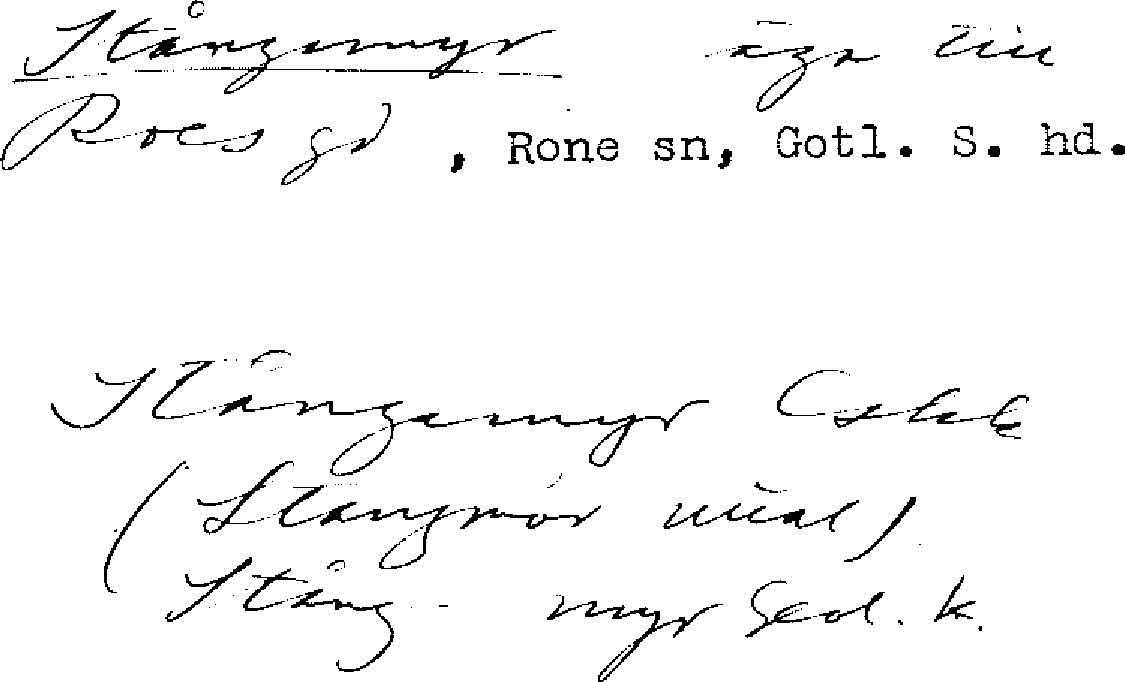 Stångamyr äga till
Roes gd, Rone sn, Gotl. S. hd.
Stångamyr Cskk
(Stangmör uttal)
Stång- myr Geol. k.